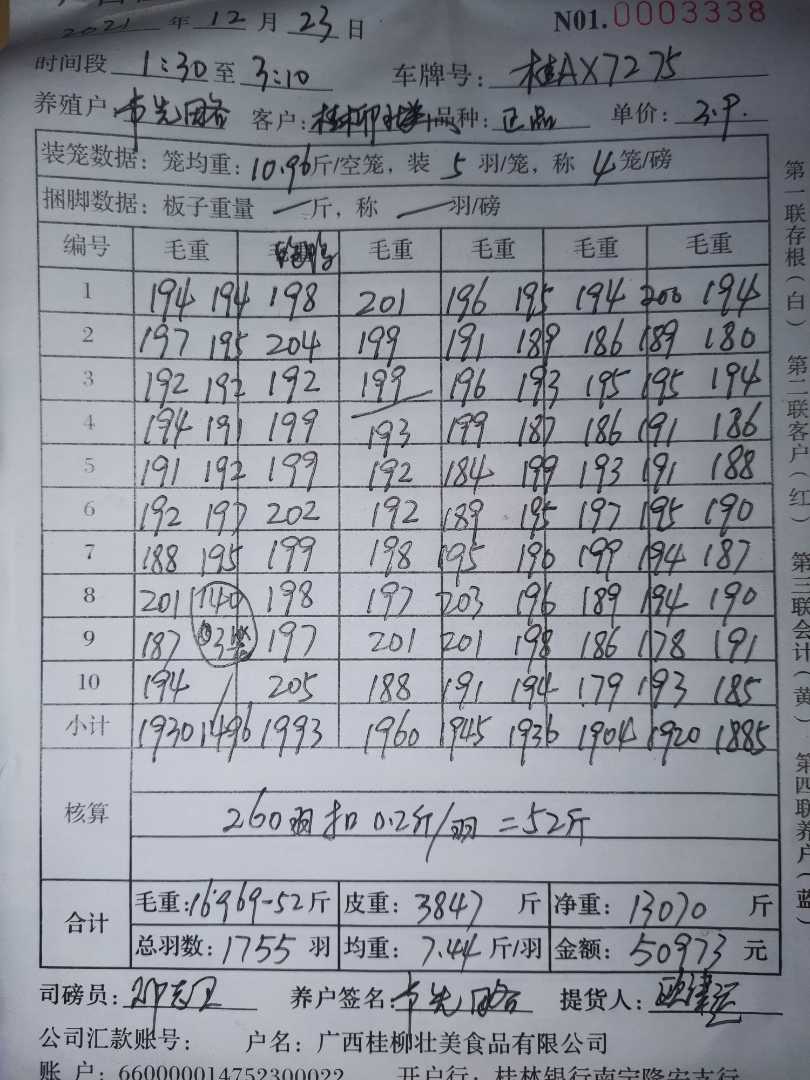 2021 年 12 月 23 日 N01.0003338
时间段 1:30 至 3:10 车牌号: 桂AX7275
养殖户 韦先团 客户: 桂柳壮美 品种: 正品 单价: 3.9.
装笼数据: 笼均重: 10.96斤/空笼, 装 5 羽/笼, 称 4笼/磅
捆脚数据: 板子重量 一斤, 称 一羽/磅
编号 毛重 毛重 毛重 毛重 毛重
1 194 194 198 201 196 195 194 200 194
2 197 195 204 199 191 189 186 189 180
3 192 192 192 199 196 193 195 195 194
4 194 191 199 193 199 187 186 191 186
5 191 192 199 192 184 199 193 191 188
6 192 197 202 192 189 195 197 195 190
7 188 195 199 198 195 190 199 194 187
8 201 140 198 197 203 196 189 194 190
9 187 3笼 197 201 201 198 186 178 191
10 194 / 205 188 191 194 179 193 185
小计 1930 1496 1993 1960 1945 1936 1904 1920 1885
核算
260羽扣 0.2斤/羽 =52斤
合计 毛重: 16969-52斤 皮重: 3847 斤 净重: 13070 斤
总羽数: 1755 羽 均重: 7.44 斤/羽 金额: 50973 元
司磅员: 养户签名: 韦先团 提货人:
公司汇款账号: 户名: 广西桂柳壮美食品有限公司
账 户: 660000014752300022 开户行: 桂林银行南宁隆安支行
第一联存根(白) 第二联客户(红) 第三联会计(黄) 第四联养户(蓝)